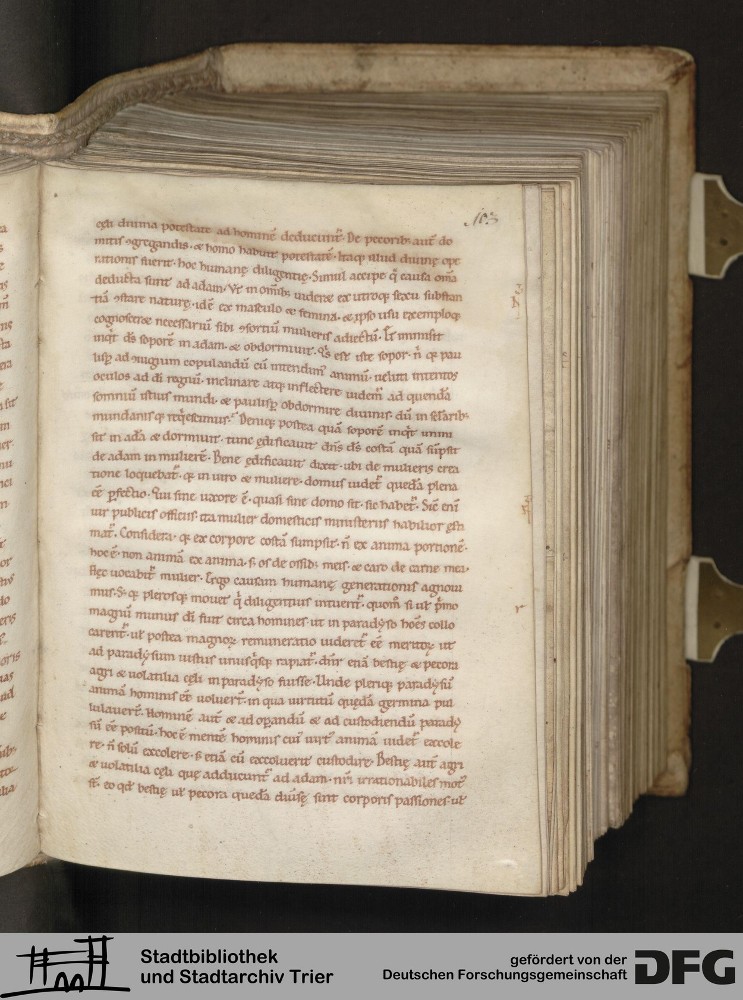 103
cęli diuina potestate ad hominē deducunt᷑. De pecorib; aut̄ do
mitis ꝯgregandis. & homo habuit potestatē. Itaq; illud diuinę ope
rationis fuerit. hoc humanę diligentię. Simul accipe q̇ causa om̄a
deducta sunt ad adam. Vt in om̄ib; uideret ex utroq; sexu substan
tiā ꝯstare naturę. idē ex masculo & femina. & ex ipso usu exemploq;
cognosceret necessariū sibi ꝯsortiū mulieris adiectū. Et immisit
inq̇t d̄s soporē in adam. & obdormiuit. Q̇s est iste sopor. n̄ q̇a pau
lisp̱ ad ꝯiugium copulandū cū intendim᷒ animū. ueluti intentos
oculos ad dī regnū. inclinare atq; inflectere uidem᷑ ad quendā
somniū istius mundi. & paulisp̱ obdormire diuinis. dū in sęłarib;
mundanisq; req̇escimus. Deniq; postea quā soporē inq̇t inmi
sit in adā & dormiuit. tunc ędificauit dn̄s d̄s costā quā sūpsit
de adam in mulierē. Bene ędificauit dixit. ubi de mulieris crea
tione loquebat᷑. q̇a in uiro & muliere. domus uidet᷑ quędā plena
ēē p̱fectio. Qui sine uxore ē. quasi sine domo sit. sic habet᷑. Sic̄ enī
uir publicis officiis. ita mulier domesticis ministeriis habilior ęsti
mat᷑. Considera. q̇a ex corpore costā sumpsit. n̄ ex anima portionē.
hoc ē. non animā ex anima. s; os de ossib; meis. & caro de carne mea.
hęc uocabit᷑ mulier. Ergo causam humanę generationis agnoui
mus. S; q̇a plerosq; mouet q̇ diligentius intuent᷑. quom̄ si uł ṗmo
magnū munus dī fuit circa homines. ut in paradyso hoēs collo
carent᷑. uł postea magnoꝝ remuneratio uideret᷑ ēē meritoꝝ. ut
ad paradysum iustus unusq̇sq; rapiat᷑. dn̄r etiā bestię & pecora
agri & uolatilia cęli in paradyso fuisse. Unde pleriq; paradysū
animā hominis ēē uoluert̄. in qua uirtutū quędā germina pul
lulauerť. Hominē aut̄ & ad op̱andū & ad custodiendū parady
sū ēē positū. hoc ē mentē hominis cui᷒ uirt᷒ animā uidet᷑ excole
re. n̄ solū excolere. s; etiā cū excoluerit custodire. Bestię aut̄ agri
& uolatilia cęli quę adducunt᷑ ad adam. nr̄i irrationabiles mot᷒
st̄. eo qđ bestię uł pecora quędā diu̇sę sint corporis passiones. uł
Stadtbibliothek
und Stadtarchiv Trier
gefördert von der
Deutschen Forschungsgemeinschaft
DFG